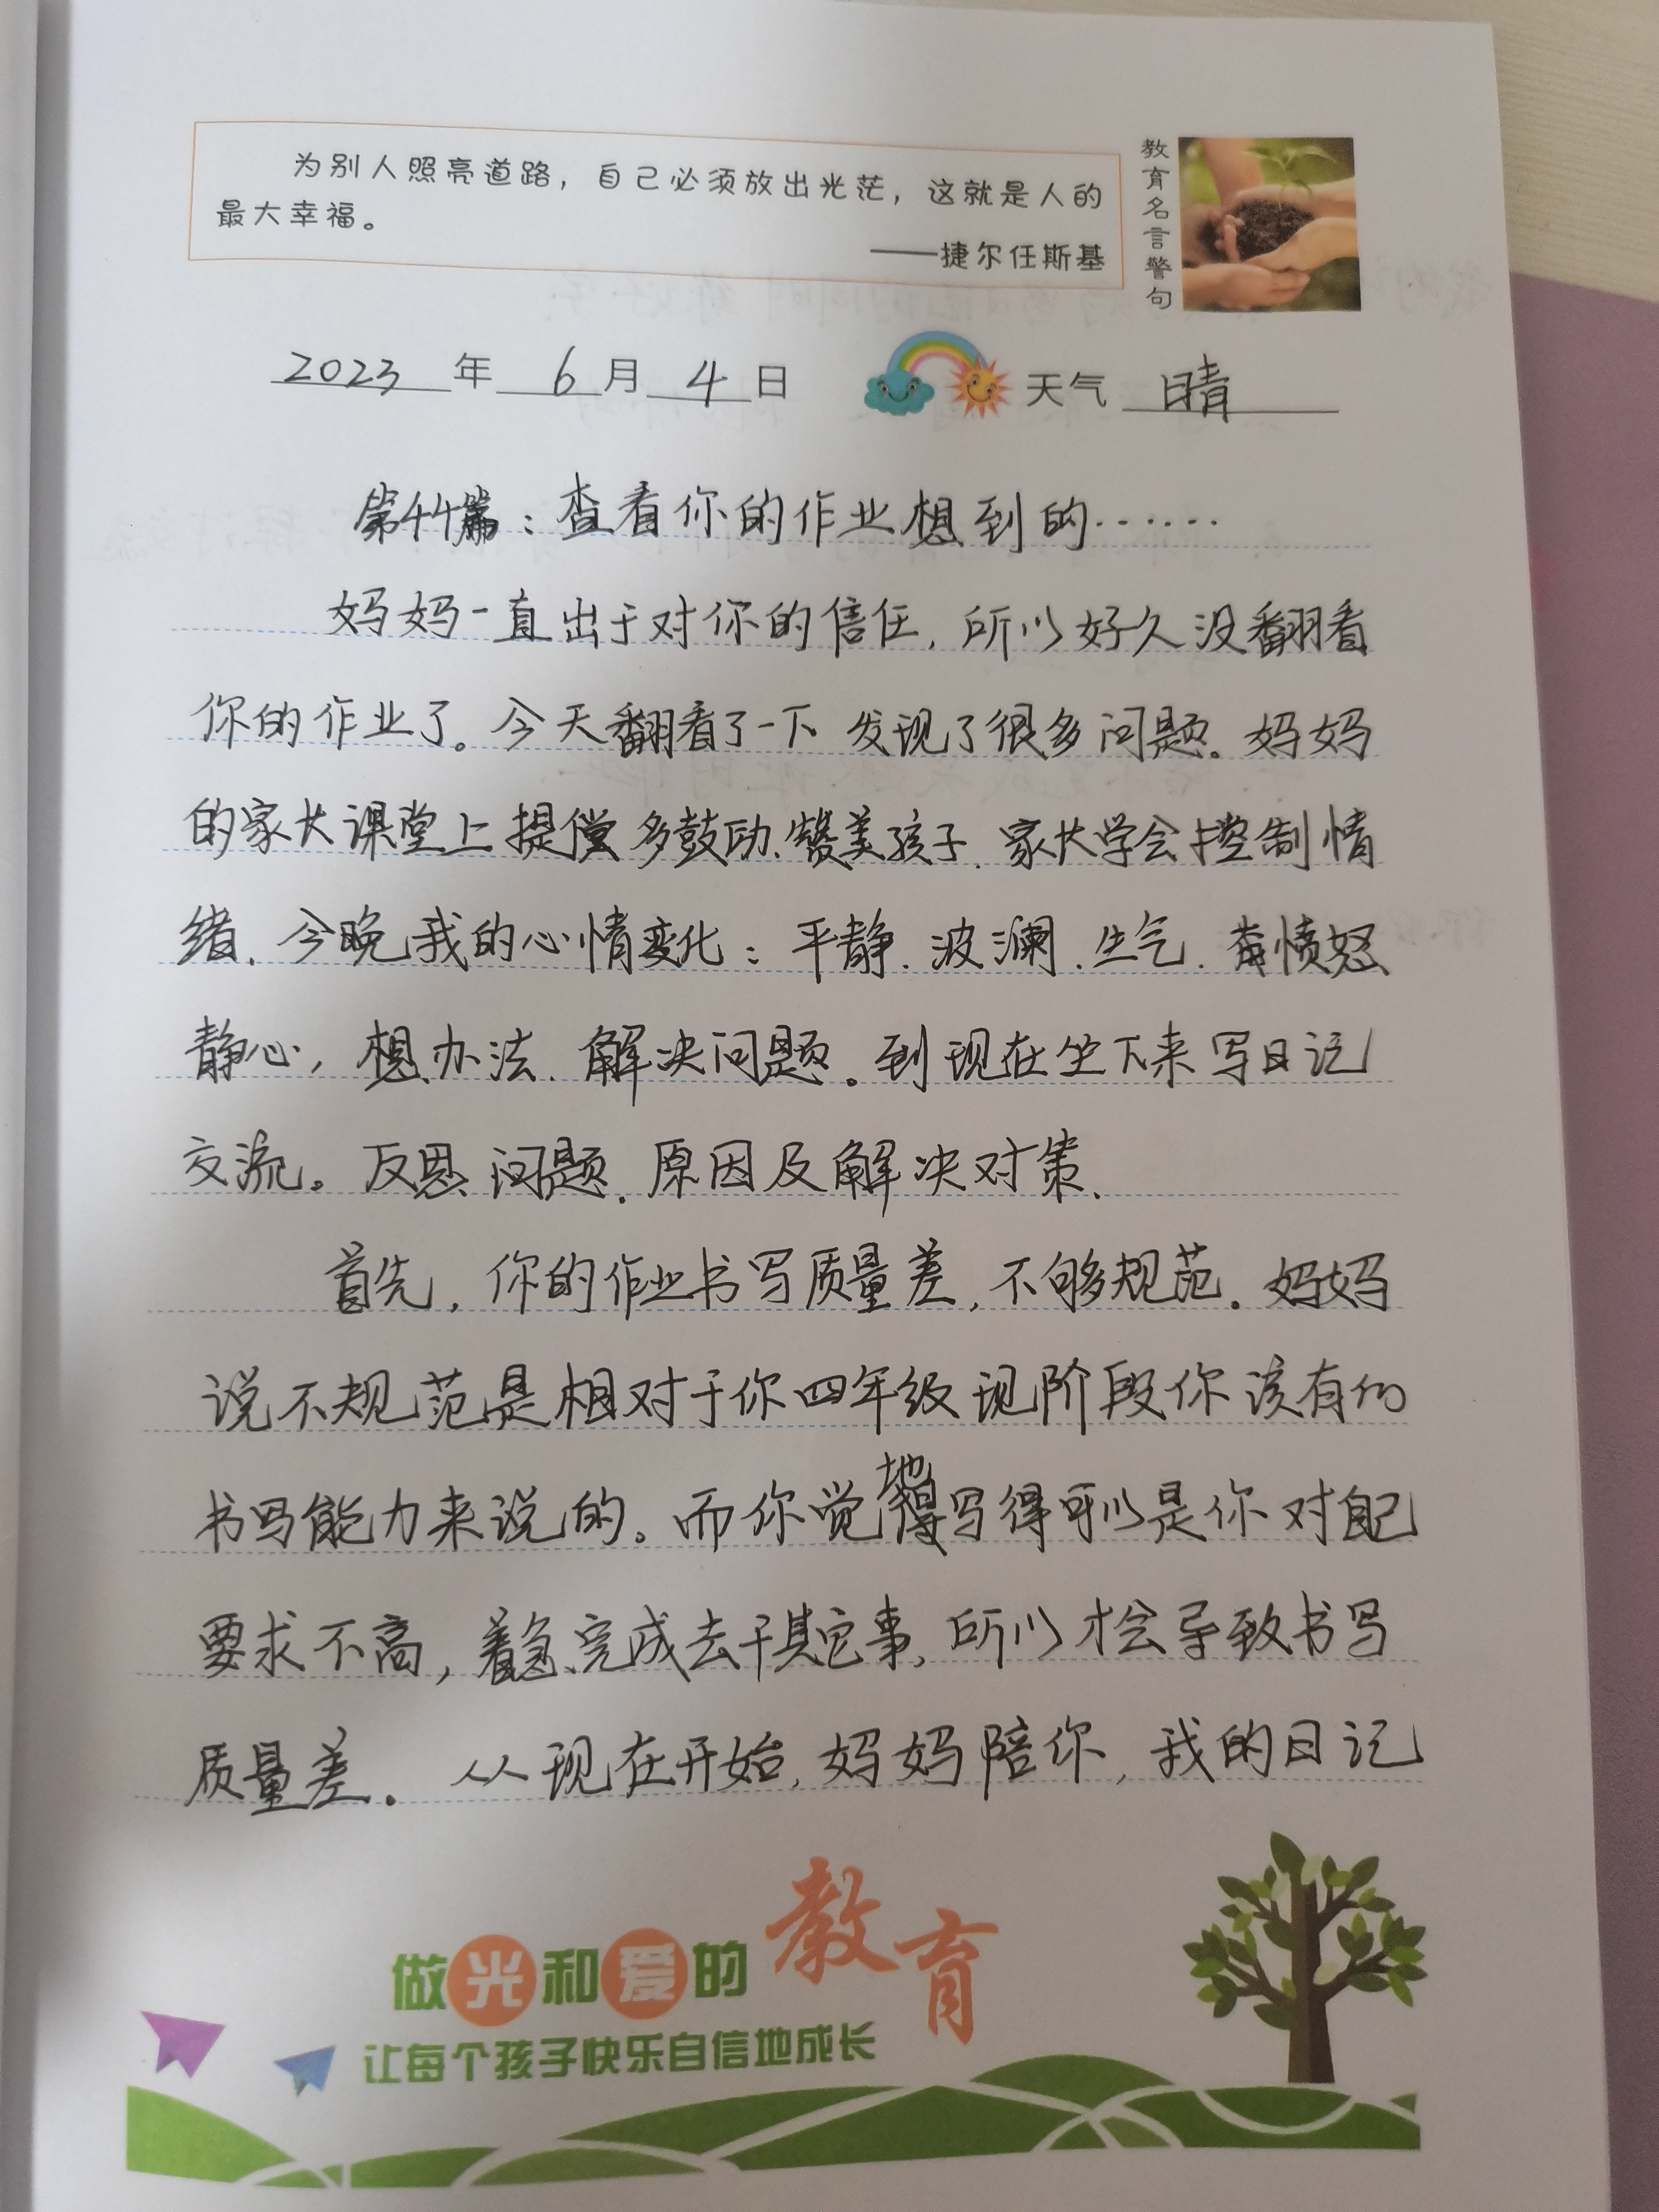 为别人照亮道路，自己必须放出光茫，这就是人的
最大幸福。
——捷尔任斯基
教育名言警句
2023年6月4日 天气 晴
第44篇：查看你的作业想到的……
妈妈一直出于对你的信任，所以好久没翻看
你的作业了。今天翻看了一下 发现了很多问题。妈妈
的家长课堂上提倡多鼓励、赞美孩子，家长学会控制情
绪，今晚我的心情变化：平静、波澜、生气、愤怒
静心，想办法、解决问题。到现在坐下来写日记
交流。反思问题、原因及解决对策、
首先，你的作业书写质量差，不够规范。妈妈
说不规范是相对于你四年级现阶段你该有的
书写能力来说的。而你觉得写得可以是你对自己
要求不高，着急完成去干其它事，所以才会导致书写
质量差。从现在开始，妈妈陪你，我的日记
做光和爱的教育
让每个孩子快乐自信地成长